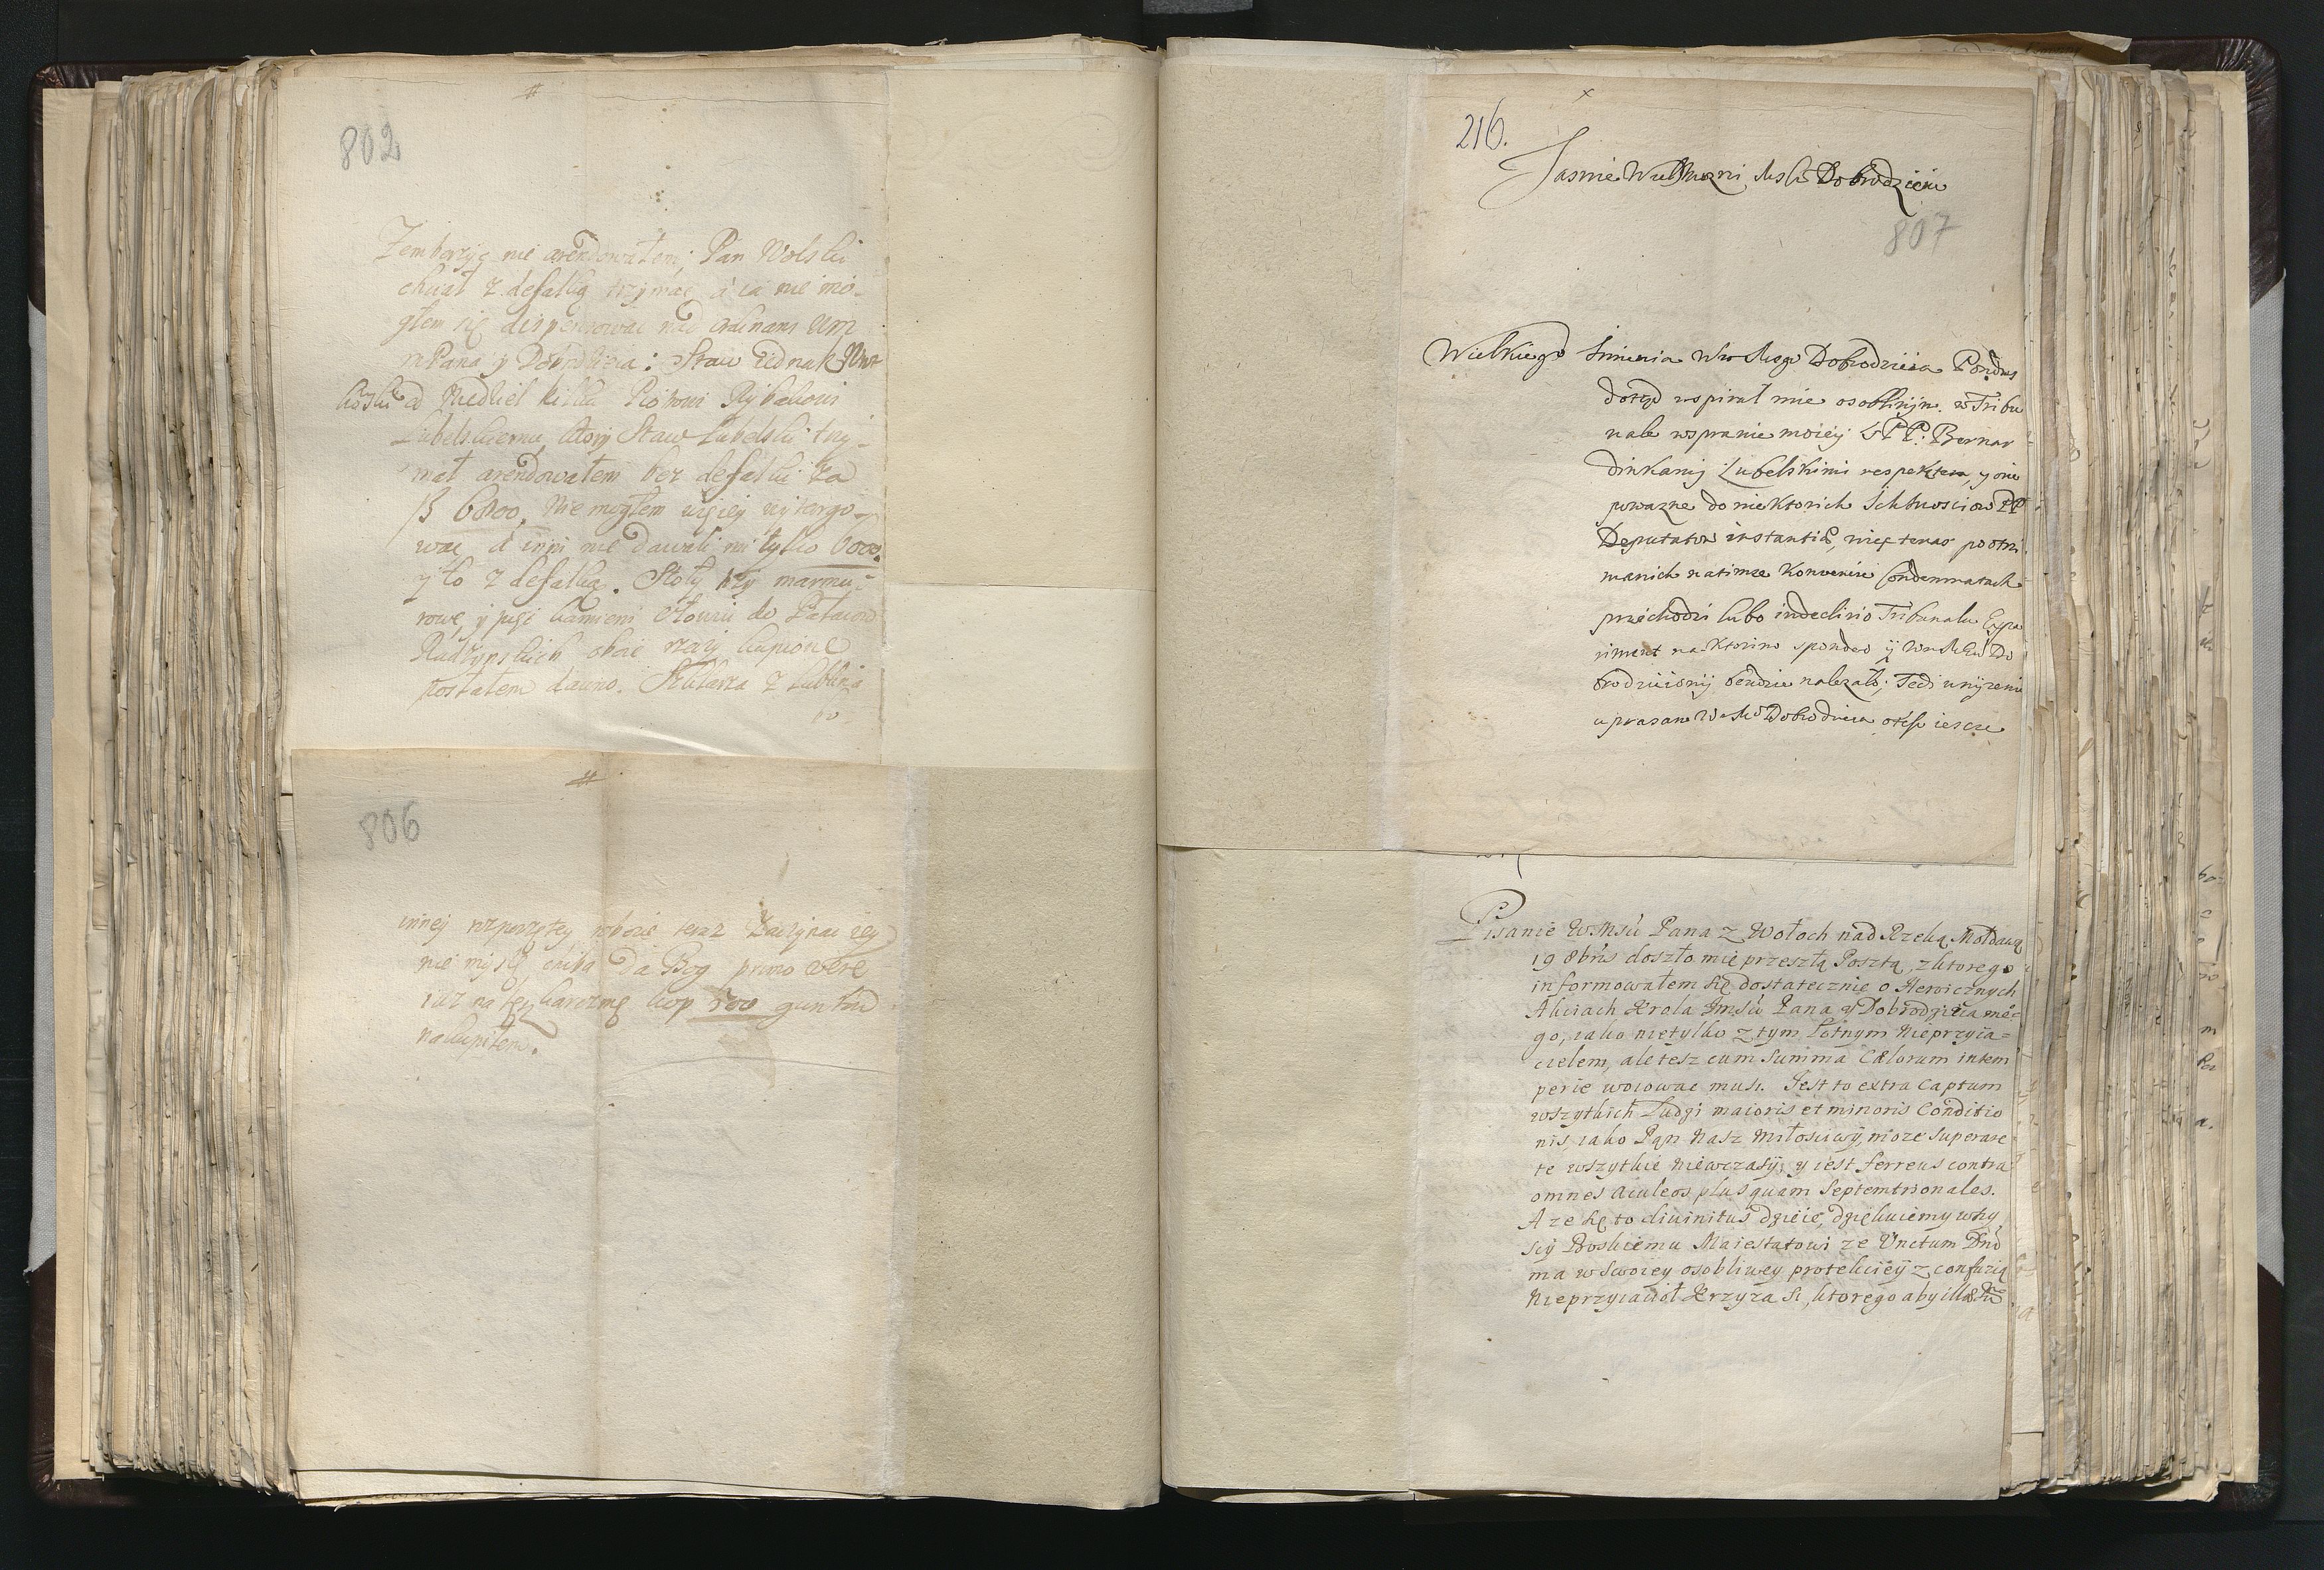 802
Zemborzyc nie arendowałem; Pan Wolski
chciał z defalką trzymać, a ia nie mo-
głem się dispensować nad ordinans
Pana y Dobrodzieia: Staw iednak
od Niedziel kilku Piotrowi Rybakowi
Lubelskiemu, ktory Staw Lubelski trzy-
mał arendowałem bez defalki za
6800, nie mogłem więcey wytargo-
wac, a inni nie dawali mi tylko 6000.
y to z defalką. Stoły trzy marmu-
rowe, y pięć kamieni ołowiu do Pałacow
Radzynskich obie rzeczy kupione
posłałem dawno. Szklarza z Lublina
806
inney rozpoczętey robocie teraz zaczynac iey
nie myslę, chiba Da Bog primo vere
iuz na tęz karczmę kop 500 guntow
nakupiłem.
216.
Jasnie Wielmozni Msci Dobrodzieiu
807
Wielkiego Imienia Dobrodzieia Pondus
dotąd wspirał mie osobliwym w Tribu
nale wsprawie moiey PP: Bernar
dinkamij Lubelskimi respektem, y
powazne do niektorich Ichmosciow PP
Deputatow instantie, niez teraz po otrzi
manich natimze Konwencie Condemnatach
przichodzi lubo indeclivio Tribunalu Expe
riment naktorimo spondeo ij Do
brodzieiowij bendzie nalezało; Tedi unizenie
uprasam Dobrodzieia iescze
Pisanie WMsci Pana z Wołoch nad Rzeką Mołdawą
19 8bris doszło mie przeszłą Posztą, z ktorego
informowałem się dostatecznie o Heroicznych
Akciach Krola Jmsci Pana y Dobrodzieia me-
go, iako nietylko z tym Lotnym Nieprzyia=
cielem, ale tesz cum Summa Cælorum intem
perie woiowac musi. Jest to extra Captum
wszytkich Ludzi maioris et minoris Conditio
nis, iako Pan Nasz Miłosciwÿ, moze superare
te wszytkie niewczasÿ, y iest ferreus contra
omnes aculeos plusquam Septemtrionales.
A ze się to divinitus dzieie, dziękuiemy wszy
scÿ Boskiemu Maiestatowi ze Unctum Dno
ma w Swoiey osobliwey protekcieÿ z confuzią
Nieprzyiacioł Krzyza S, ktorego aby